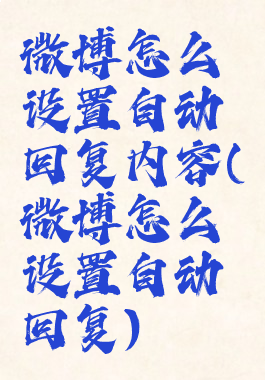 微博怎么
设置自动
回复内容(
微博怎么
设置自动
回复)